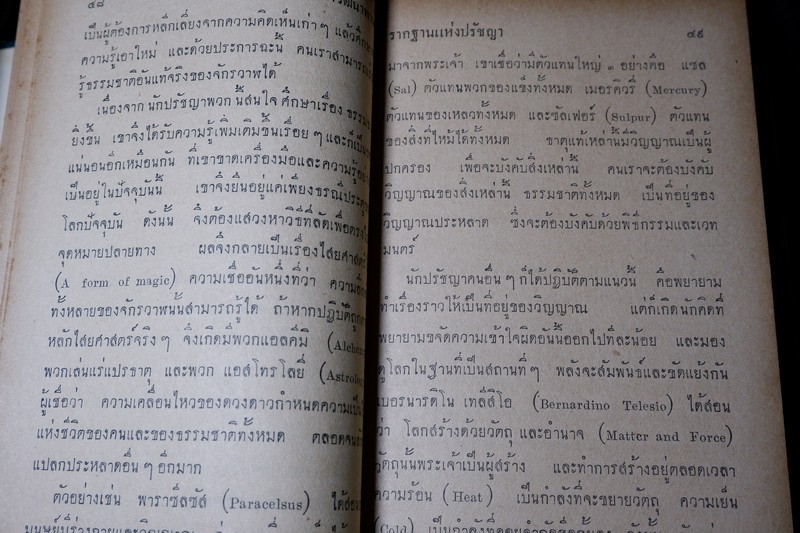 ๔๘
เป็นผู้ต้องการหลีกเลี่ยงจากความคิดเห็นเก่า ๆ แล้วศึกษา
ความรู้เอาใหม่ และด้วยประการฉะนี้ คนเราสามารถ
รู้ธรรมชาติอันแท้จริงของจักรวาฬได้
เนื่องจากนักปรัชญาพวกนี้สนใจศึกษาเรื่อง ธรรมชาติ
ยิ่งขึ้น เขาจึงได้รับความรู้เพิ่มเติมขึ้นเรื่อย ๆ และก็เป็น
แน่นอนอีกเหมือนกัน ที่เขาขาดเครื่องมือและความรู้อย่างที่
เป็นอยู่ในปัจจุบันนี้ เขาจึงยืนอยู่แค่เพียงธรณีประตู
โลกปัจจุบัน ดังนั้น จึงต้องแสวงหาวิธีที่ลัดเพื่อตรงไป
จุดหมายปลายทาง ผลจึงกลายเป็นเรื่องไสยศาสตร์
(A form of magic) ความเชื่ออันหนึ่งที่ว่า
ทั้งหลายของจักรวาฬนั้นสามารถรู้ได้ ถ้าหากปฏิบัติถูก
หลักไสยศาสตร์จริง ๆ จึงเกิดมีพวกแอลคีมี (Alchem
พวกเล่นแร่แปรธาตุ และพวก แอสโทรโลยี่ (Astrolog
ผู้เชื่อว่า ความเคลื่อนไหวของดวงดาวกำหนดความเป็น
แห่งชีวิตของคนและของธรรมชาติทั้งหมด ตลอดจน
แปลกประหลาดอื่น ๆ อีกมาก
ตัวอย่างเช่น พาราซึลซัส (Paracelsus) ได้สอน
มนุษย์มีร่างกายและวิญญาณ
รากฐานแห่งปรัชญา ๔๙
มาจากพระเจ้า เขาเชื่อว่ามีตัวแทนใหญ่ ๓ อย่างคือ แซล
(Sal) ตัวแทนพวกของแข็งทั้งหมด เมอรคิวรี่ (Mercury)
ตัวแทนของเหลวทั้งหมด และซัลเฟอร์ (Sulpur) ตัวแทน
ของสิ่งที่ไหม้ได้ทั้งหมด ธาตุแท้เหล่านี้มีวิญญาณเป็นผู้
ปกครอง เพื่อจะบังคับสิ่งเหล่านี้ คนเราจะต้องบังคับ
วิญญาณของสิ่งเหล่านี้ ธรรมชาติทั้งหมด เป็นที่อยู่ของ
วิญญาณประหลาด ซึ่งจะต้องบังคับด้วยพิธีกรรมและเวท
มนตร์
นักปรัชญาคนอื่น ๆ ก็ได้ปฏิบัติตามแนวนี้ คือพยายาม
ทำเรื่องราวให้เป็นที่อยู่ของวิญญาณ แต่ก็เกิดนักคิดที่
พยายามขจัดความเข้าใจผิดอันนี้ออกไปทีละน้อย และมอง
ดูโลกในฐานที่เป็นสถานที่ ๆ พลังจะสัมพันธ์และขัดแย้งกัน
เบอรนารดิโน เทลีสิโอ (Bernardino Telesio) ได้สอน
ว่า โลกสร้างด้วยวัตถุ และอำนาจ (Matter and Force)
วัตถุนั้นพระเจ้าเป็นผู้สร้าง และทำการสร้างอยู่ตลอดเวลา
ความร้อน (Heat) เป็นกำลังที่จะขยายวัตถุ ความเย็น
(Cold) เป็นกำลังที่คอยกำจัด